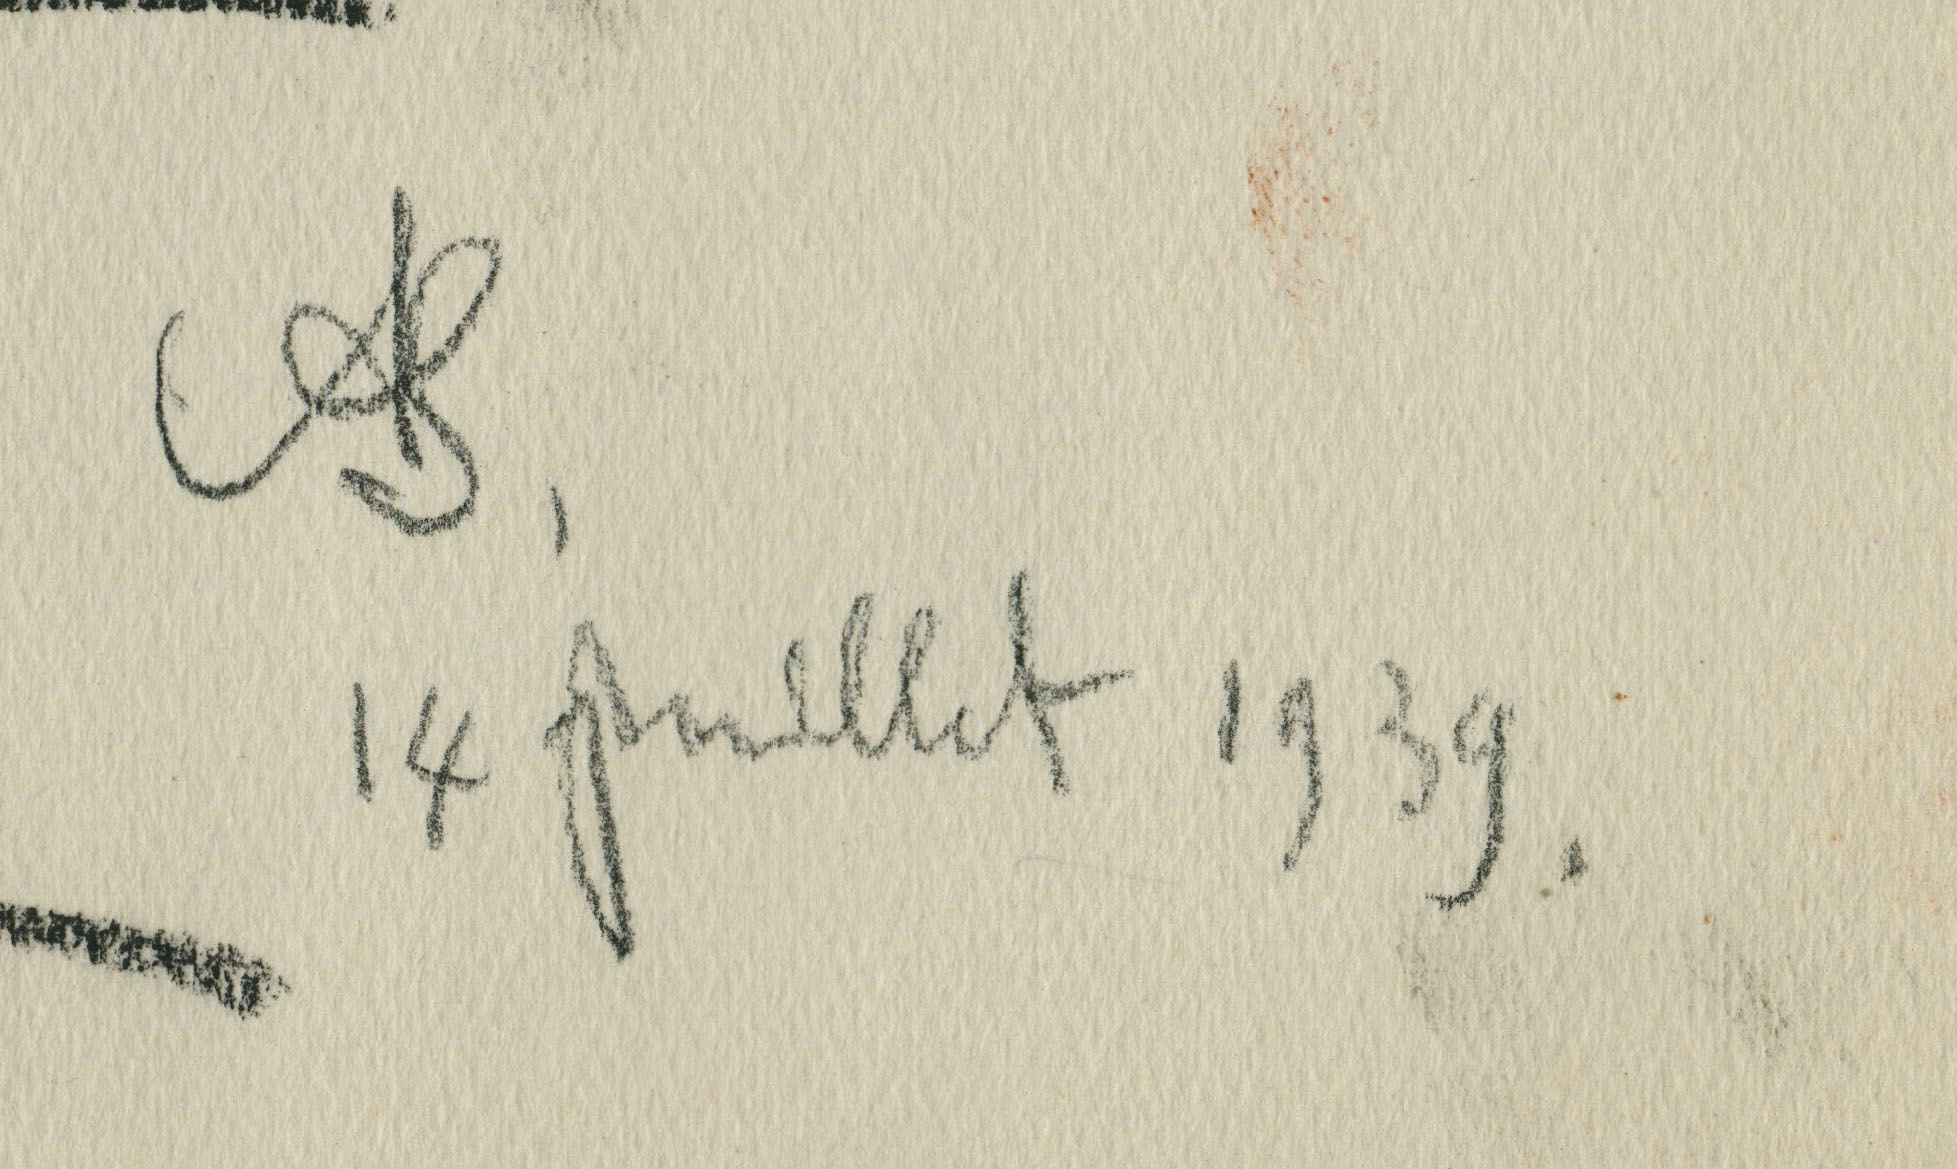 AB,
14 juillet 1939.